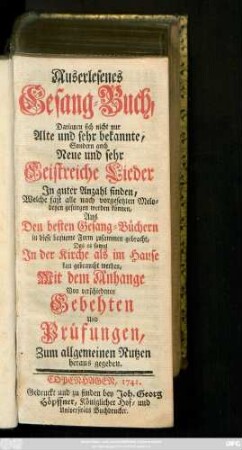 Auserlesenes
Gesang-Buch,
Darinnen sich nicht nur
Alte und sehr bekannte,
Sondern auch
Neue und sehr
Geistreiche Lieder
In guter Anzahl finden,
Welche fast alle nach vorgesetzten Melo-
deyen gesungen werden können,
Aus
Den besten Gesang-Büchern
in diese bequeme Form zusammen gebracht,
Daß es sowol
In der Kirche als im Hause
kan gebraucht werden,
Mit dem Anhange
Von verschiedenen
Gebehten
Und
Prüfungen,
Zum allgemeinen Nutzen
heraus gegeben.
COPENHAGEN, 1742.
Gedruckt und zu finden bey Joh. Georg
Höpffner, Königlicher Hof- und
Universitäts Buchdrucker.